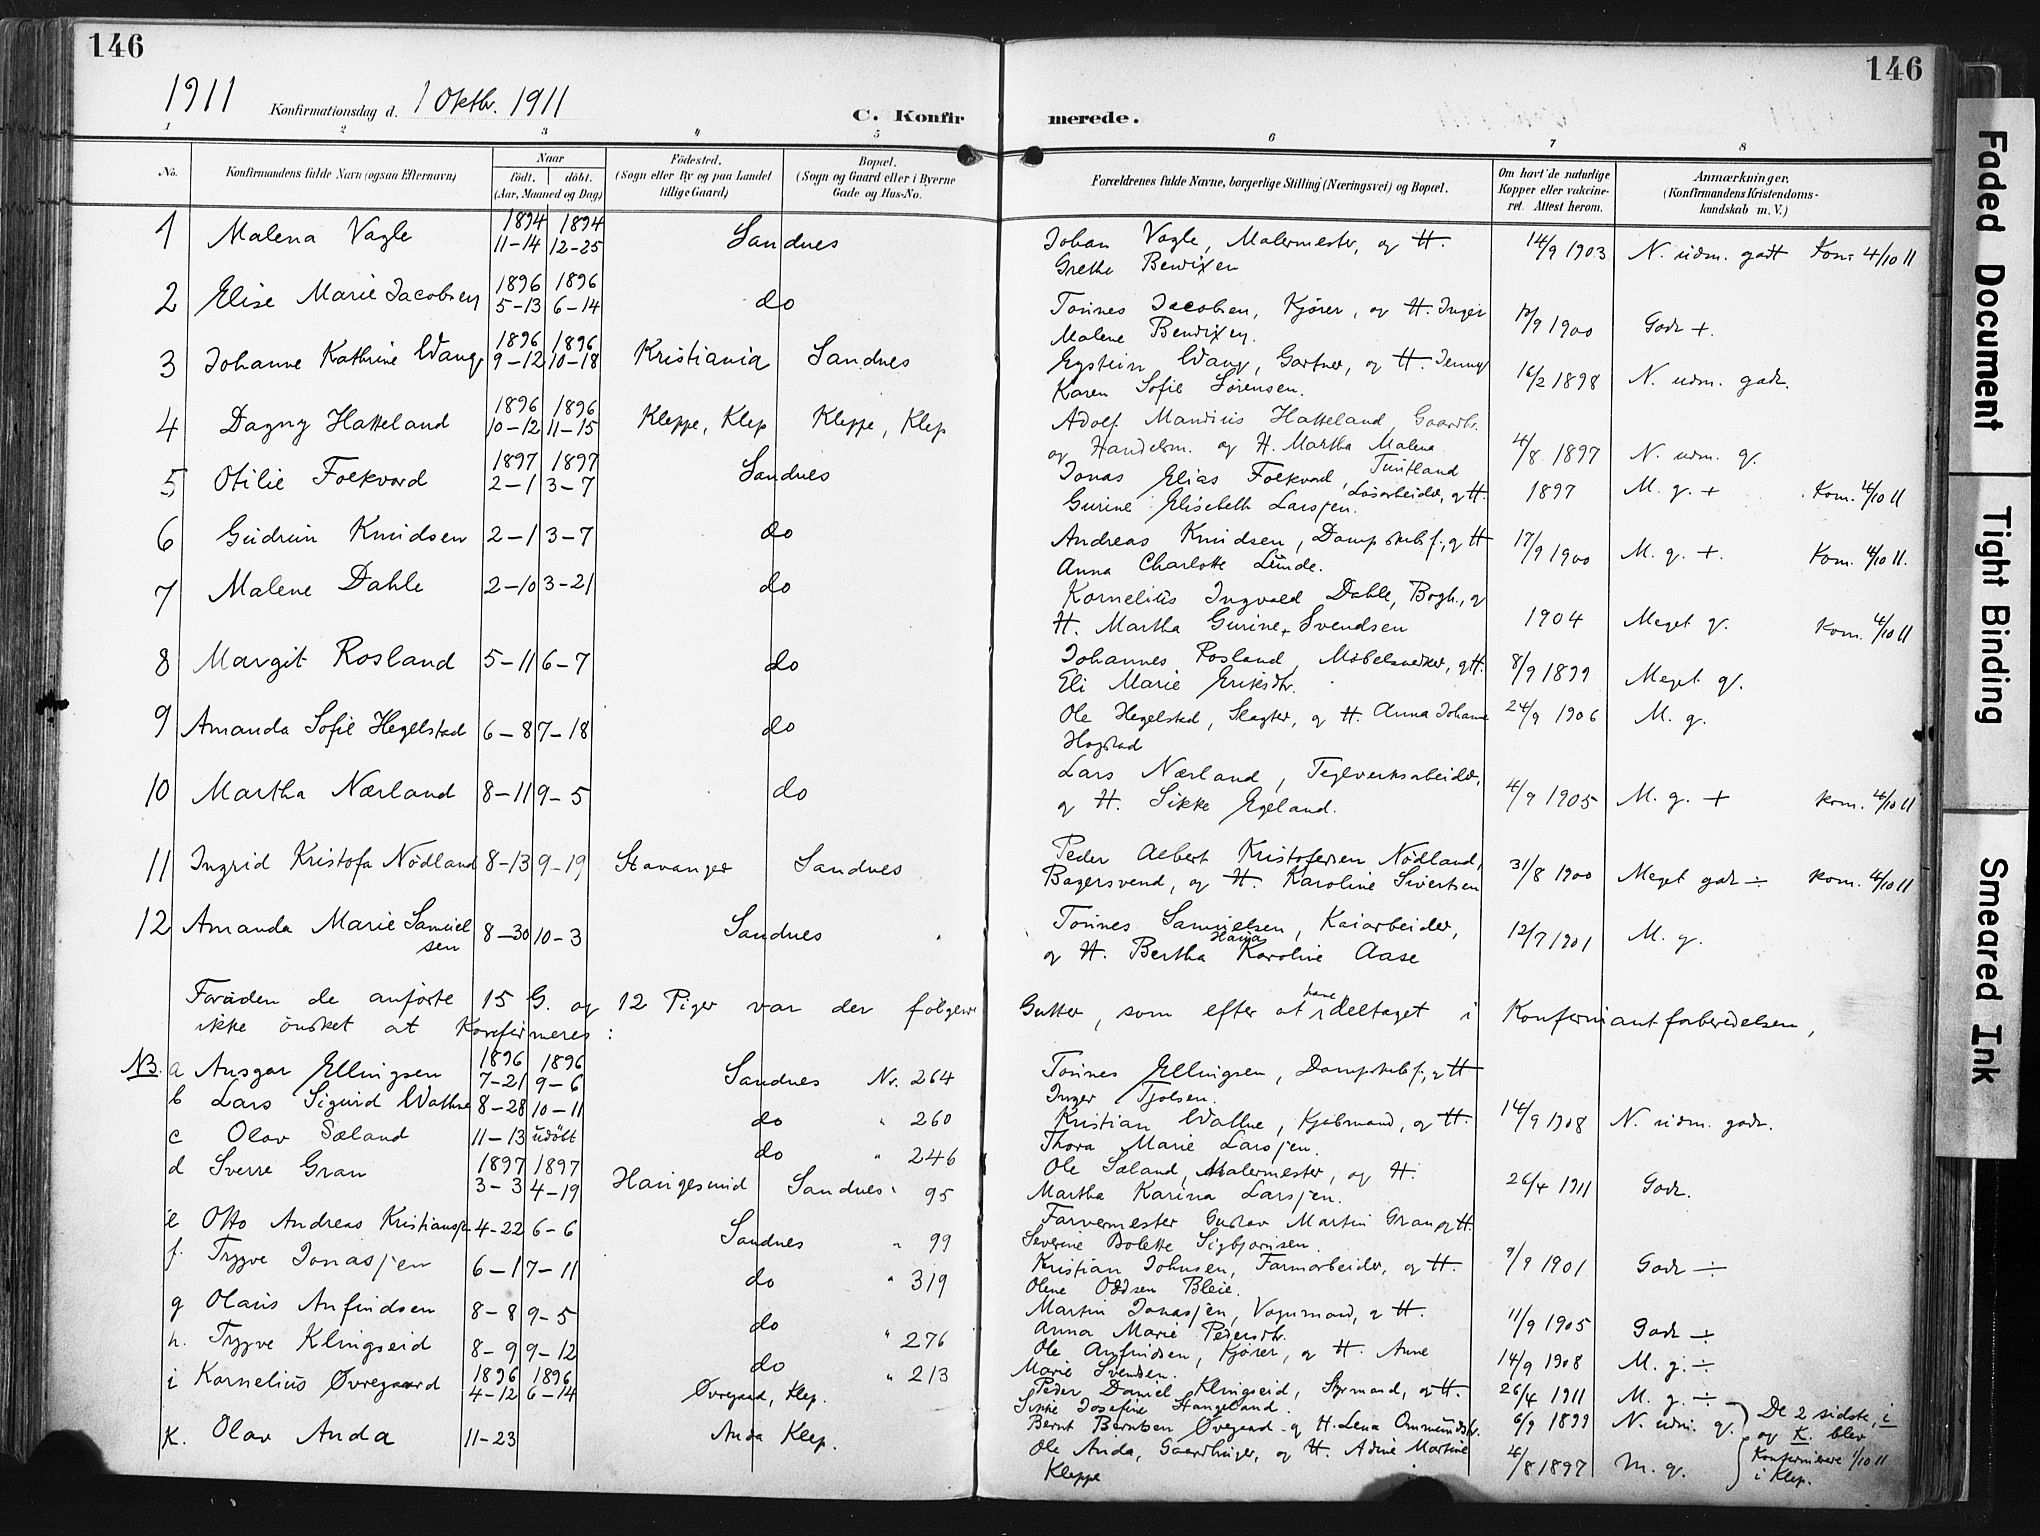 146
146
1911 Konfirmationsdag d. 1 Oktbr. 1911
C. Konfirmerede.
1 2 3 4 5 6 7 8
No. Konfirmandens fulde Navn (ogsaa Efternavn) Naar født. døbt. (Aar, Maaned og Dag) Fødested. (Sogn eller By og paa Landet tillige Gaard) Bopæl. (Sogn og Gaard eller i Byerne Gade og Hus-No. Forældrenes fulde Navne, borgerlige Stilling (Næringsvei) og Bopæl. Om havt de naturlige Kopper eller vakcineret. Attest herom. Anmærkninger, (Konfirmandens Kristendomskundskab m. V.)
1 Malena Vagle 1894 11-14 1894 12-25 Sandnes Johan Vagle, Malermester, og H. Grethe Bendixen 14/9 1903 N. udm. godt Kom. 4/10 11
2 Elise Marie Jacobsen 1896 5-13 1896 6-14 do Tønnes Jacobsen, Kjører, og H. Inger Malene Bendixen. 1900 Godt +.
3 Johanne Kathrine Wang 1896 9-12 1896 10-18 Kristiania Sandnes Eystein Wang, Gartner, og H. Jenny Karen Sofie Sørensen. 16/2 1898 N. udm. godt.
4 Dagny Hatteland 1896 10-12 1896 11-15 Kleppe, Klep Kleppe, Klep Adolf Mandius Hatteland, Gaardbr. og Handelsm. og H. Martha Malena Tuntland 4/8 1897 N. udm. g.
5 Otilie Folkvord 1897 2-1 1897 3-7 Sandnes Jonas Elias Folkvord, Løsarbeider, og H. Gurine Elisebeth Larsen. 1897 M. g. + Kom. 4/10 11
6 Gudrun Knudsen 2-1 3-7 do Andreas Knudsen, Dampskibsf., og H Anna Charlotte Lunde. 17/9 1900 M. g. +. Kom. 4/10 11.
7 Malene Dahle 2-10 3-21 do Kornelius Ingvald Dahle, Bogh., og H. Martha Gurine Svendsen 1904 Meget g. Kom. 4/10 11
8 Margit Rosland 5-11 6-7 do Johannes Rosland, Møbelsnedker, og H. Eli Marie Eriksdtr. 8/9 1899 Meget g.
9 Amanda Sofie Hegelstad 6-8 7-18 do Ole Hegelstad, Slagter, og H. Anna Johanne Hogstad 24/9 1906 M. g.
10 Martha Nærland 8-11 9-5 do Lars Nærland, Teglverksarbeider, og H. Sikke Egeland. 4/9 1905 M. g. + Kom. 4/10 11
11 Ingrid Kristofa Nødland 8-13 9-19 Stavanger Sandnes Peder Albert Kristofersen Nødland, Bagersvend, og H. Karoline Sivertsen 31/8 1900 Meget godt ÷ Kom. 4/10 11
12 Amanda Marie Samuelsen 8-30 10-3 Sandnes Tønnes Samuelsen, Kaiarbeider, og H. Bertha Hansa Karoline Aase 12/7 1901 M. g.
Foruden de anførte 15 G. og 12 Piger var der følgende Gutter, som efter at have deltaget i Konfirmantforberedelsen,
ikke ønsket at Konfirmeres:
NB. a Ansgar Ellingsen 1896 7-21 1896 9-6 Sandnes Nr. 264 Tønnes Ellingsen, Dampskibsf., og H Inger Tjølsen.
b Lars Sigurd Wathne 8-28 10-11 do " 260 Kristian Wathne, Kjøbmand, og H. Thora Marie Larsen. 14/9 1908 N. udm. godt.
c Olav Sæland 11-13 udøbt do " 246 Ole Sæland, Malermester, og H. Martha Karina Larsen. 26/4 1911 Godt.
d Sverre Gran 1897 3-3 1897 4-19 Haugesund Sandnes " 95 Farvermester Gustav Martin Gran og H. Severine Bolette Sigbjørnsen.
e Otto Andreas Kristiansen 4-22 6-6 Sandnes " 99 Kristian Johnsen, Farmarbeider, og H. Olene Oddsen Bleie. 9/9 1901 Godt ÷
f. Trygve Jonassen 6-1 7-11 do " 319 Martin Jonassen, Vognmand, og H. Anna Marie Pedersdtr. 11/9 1905 Godt ÷
g Olaus Anfindsen 8-8 9-5 do " 276 Ole Anfindsen, Kjører, og H. Anne Marie Svendsen. 14/9 1908 M. g. ÷
h. Trygve Klingseid 8-9 9-12 do " 213 Peder Daniel Klingseid, Styrmand, og H. Sikke Josefine Stangeland. 26/4 1911 M. g. ÷
i Kornelius Øvregaard 1896 4-12 1896 6-14 Øvregaard, Klep. Bernt Berntsen Øvregaard og H. Lena Ommundsdtr. 6/9 1899 N. udm. g.
K. Olav Anda 11-23 Anda Klep. Ole Anda, Gaardbruger, og H. Adine Martine Kleppe 4/8 1897 M. g.
De 2 sidste, i
og K. blev
Konfirmerede 1/10 11
i Klep.
Faded Document
Tight Binding
Smeared Ink